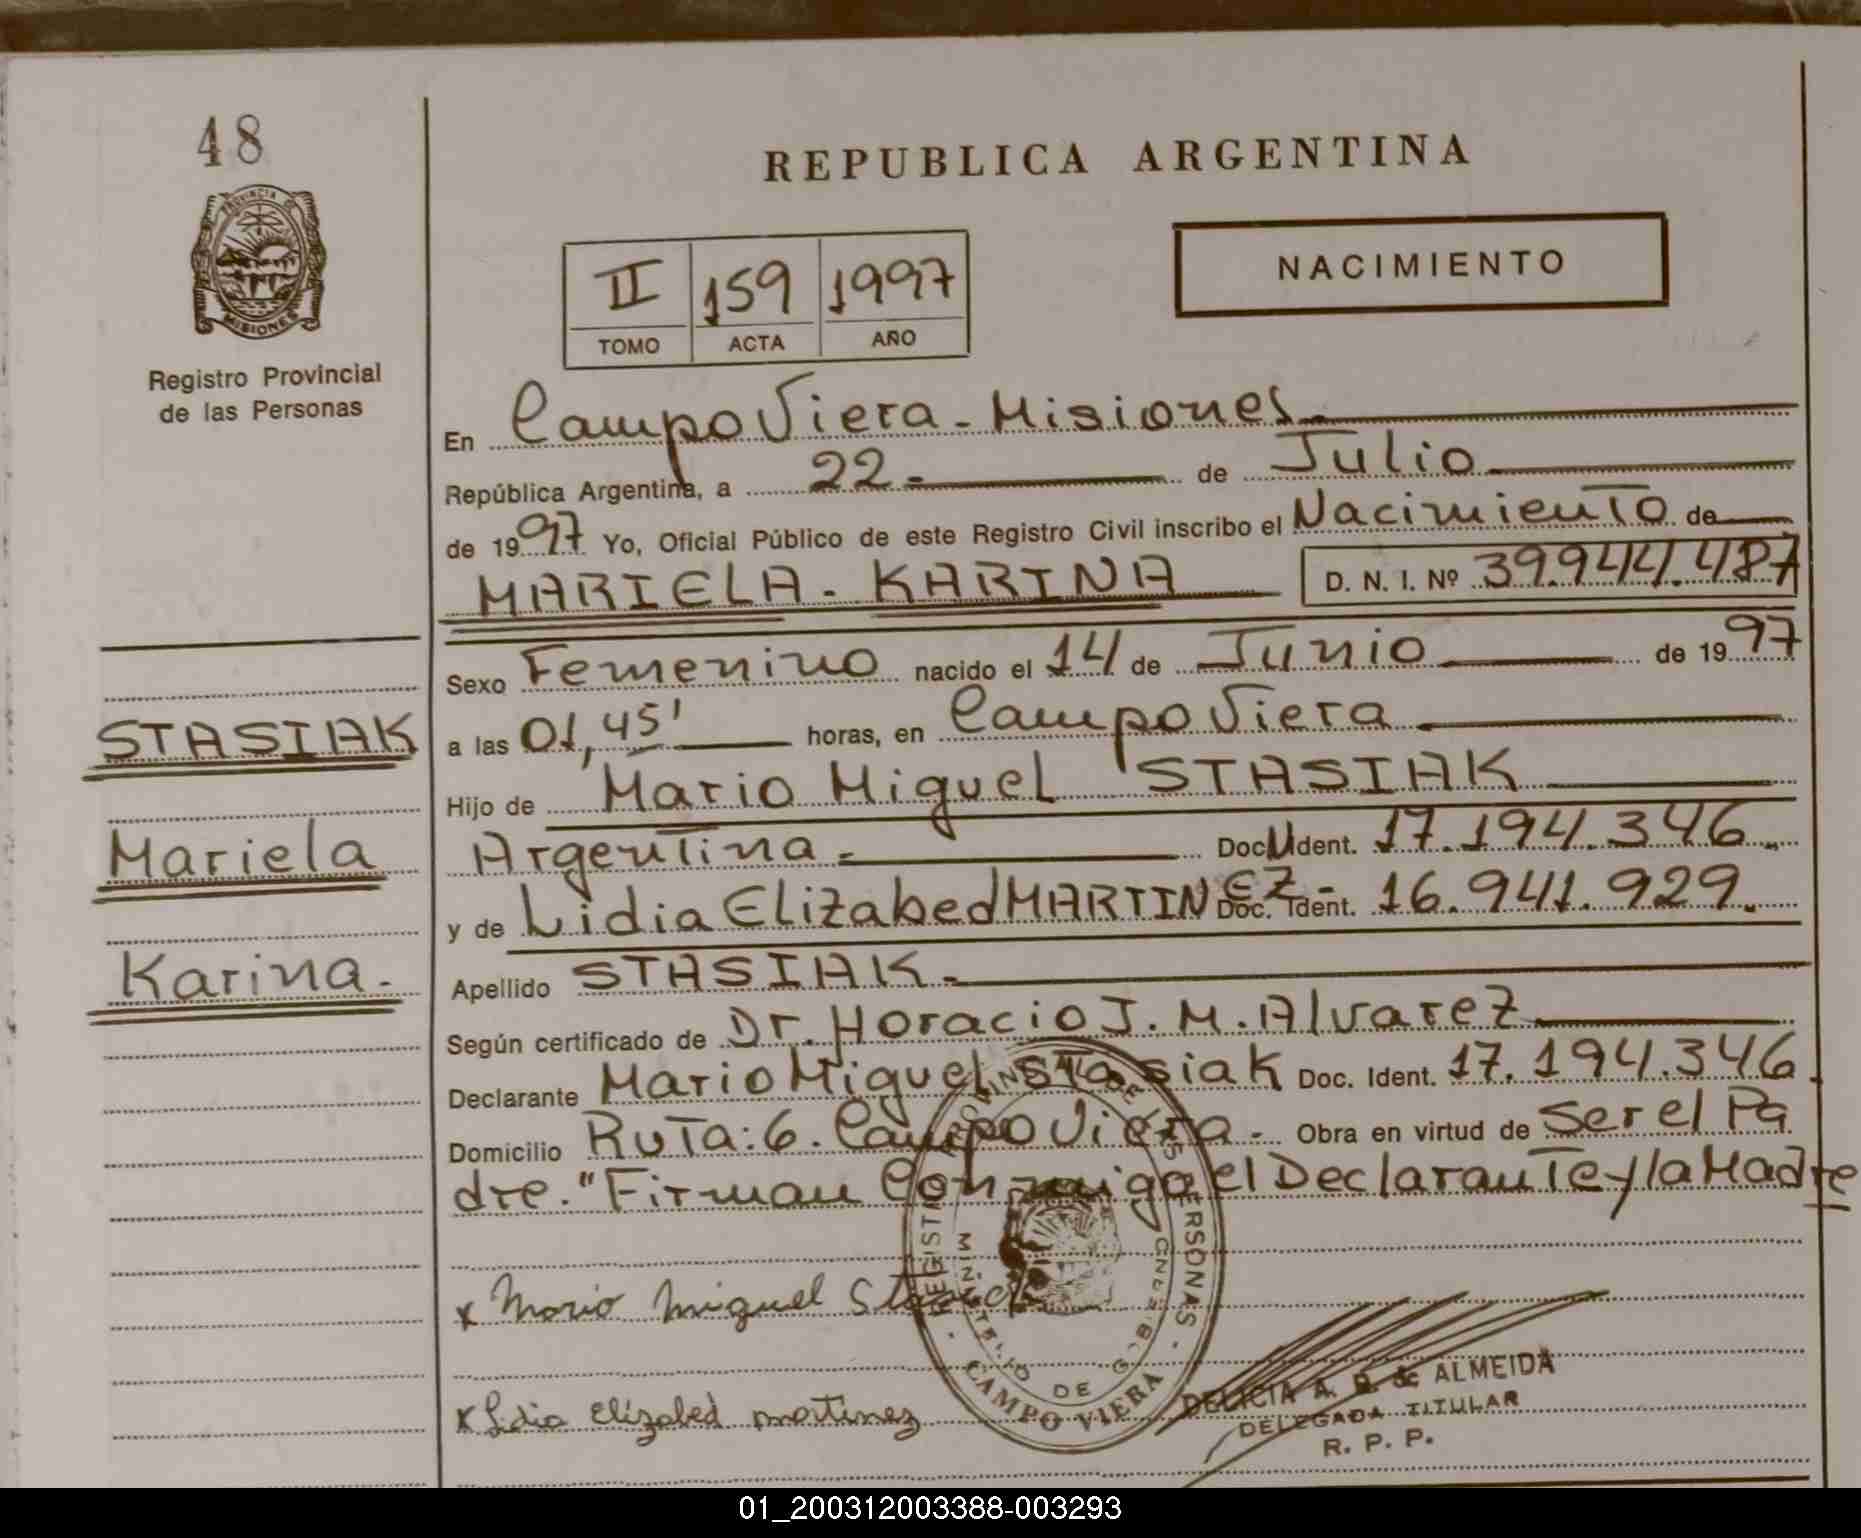 48
PROVINCIA DE
MISIONES
Registro Provincial
de las Personas
STASIAK
Mariela
Karina.
REPUBLICA ARGENTINA
II 159 1997
TOMO ACTA AÑO
NACIMIENTO
En Campo Viera - Misiones
República Argentina, a 22 de Julio
de 1997 Yo, Oficial Público de este Registro Civil inscribo el Nacimiento de
MARIELA - KARINA D. N. I. Nº 39.944.487
Sexo Femenino nacido el 14 de Junio de 1997
a las 01,45' horas, en Campo Viera
Hijo de Mario Miguel STASIAK
Argentina - Doc. Ident. 17.194.346
y de Lidia Elizabed MARTINEZ - Doc. Ident. 16.941.929.
Apellido STASIAK -
Según certificado de Dr. Horacio J. M. Alvarez
Declarante Mario Miguel Stasiak Doc. Ident. 17.194.346.
Domicilio Ruta: 6. Campo Viera. Obra en virtud de Ser el Pa
dre. "Firman Conmigo el Declarante y la Madre
x Mario Miguel Stasiak
x Lidia Elizabed martinez
REGISTRO PROVINCIAL DE LAS PERSONAS
MINISTERIO DE GOBIERNO
CAMPO VIERA
DELICIA A. de ALMEIDA
DELEGADA TITULAR
R. P. P.
01_200312003388-003293